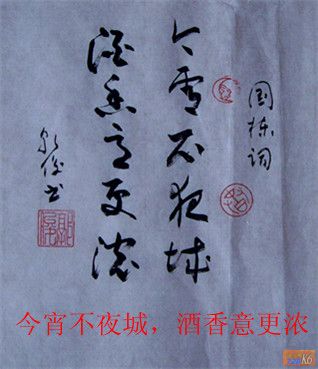 国栋词
今宵不夜城
酒香意更浓
俊书
今宵不夜城，酒香意更浓
K6